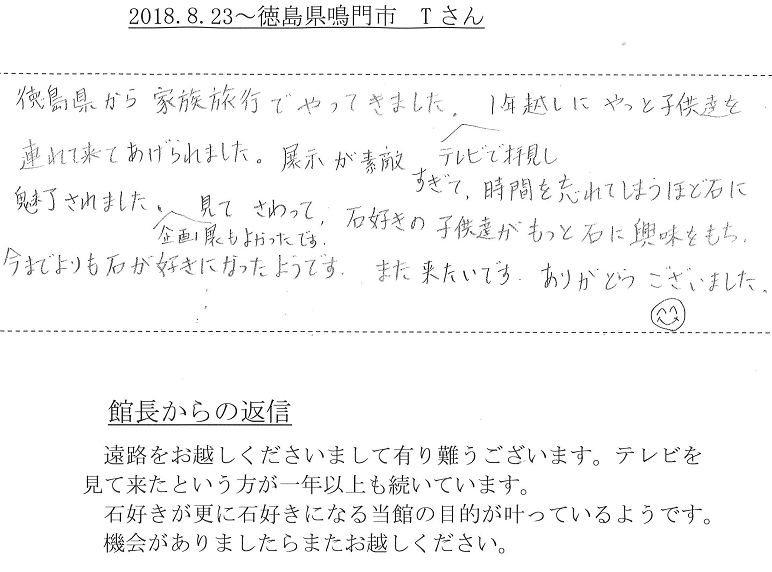 2018.8.23～徳島県鳴門市　Tさん
徳島県から家族旅行でやってきました。1年越しにやっと子供達を
テレビで拝見し
連れて来てあげられました。展示が素敵すぎて、時間を忘れてしまうほど石に
魅了されました。見てさわって、石好きの子供達がもっと石に興味をもち、
企画展もよかったです。
今までよりも石が好きになったようです。また来たいです。ありがとうございました。
館長からの返信
遠路をお越しくださいまして有り難うございます。テレビを
見て来たという方が一年以上も続いています。
石好きが更に石好きになる当館の目的が叶っているようです。
機会がありましたらまたお越しください。